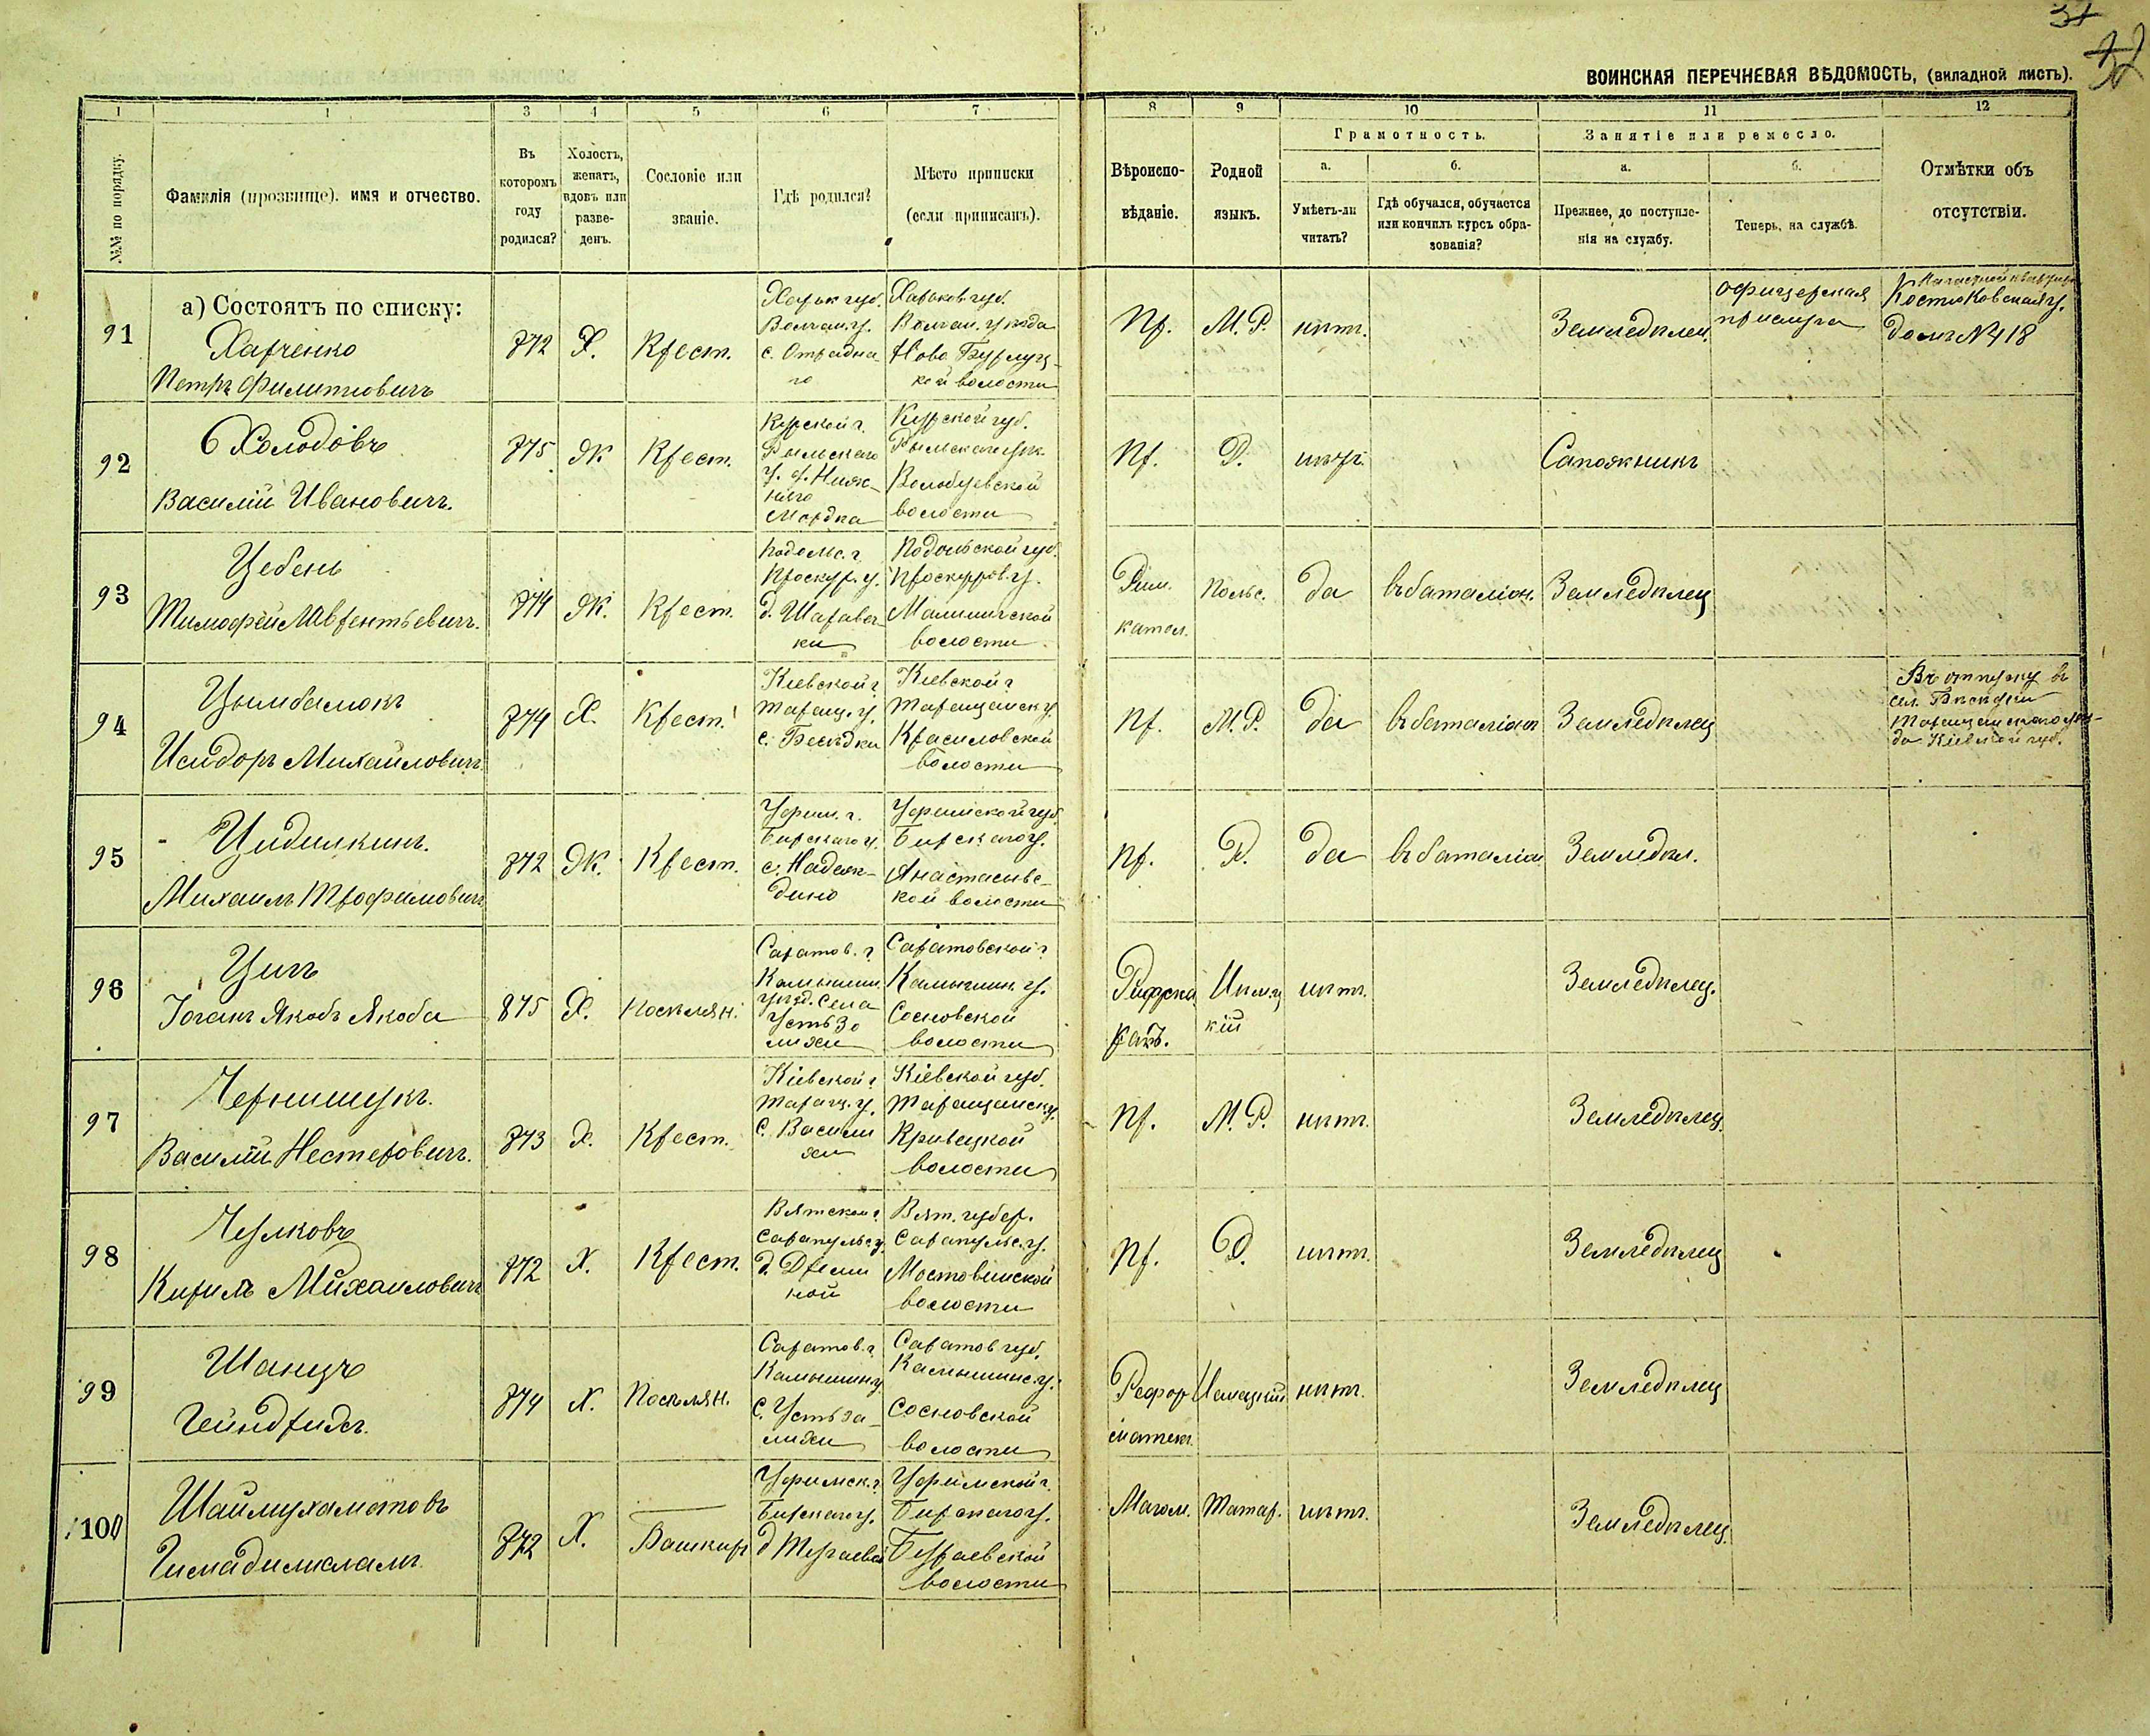 ВОИНСКАЯ ПЕРЕЧНЕВАЯ ВѢДОМОСТЬ, (вкладной листъ).
1 1 3 4 5 6 7 8 9 10 11 12
№№ по порядку.
Фамилія (прозвище), имя и отчество.
Въ которомъ году родился?
Холостъ, женатъ, вдовъ или разведенъ.
Сословіе или званіе.
Гдѣ родился?
Мѣсто приписки (если приписанъ).
Вѣроисповѣданіе.
Родной языкъ.
Грамотность.
а.
Умѣетъ-ли читать?
б.
Гдѣ обучался, обучается или кончилъ курсъ образованія?
Занятіе или ремесло.
а.
Прежнее, до поступленія на службу.
б.
Теперь, на службѣ.
Отмѣтки объ отсутствіи.
а) Состоятъ по списку:
91
Харченко
Петръ Филиповичъ
872
Х.
Крест.
Харьк губ.
Волчан. у.
с. Отрадна
го
Харьков губ.
Волчан. уѣзда
Ново Бурлуц-
кой волости
Пр.
М. Р.
нѣт.
Земледѣлец.
офицерская
прислуга
Костюковская у.
домъ № 18
92
Холодовъ
Василій Ивановичъ.
875
Ж
Крест.
Курской г.
Рыльскаго
у. д. Ниж-
няго
Мордка
Курской губ.
волости
Пр.
Р.
нѣт.
Сапожникъ
93
Цебень
Тимофей Лаврентьевичъ.
874
Ж.
Крест.
Подольс. г.
Проскур. у.
д. Шаравеч-
ки
Подольской губ.
Проскуров. у.
Малиничской
волости
Рим.
катол.
Польс.
да
въ баталіон.
Земледѣлец
94
Цымбалюкъ
Исидоръ Михайловичъ
874
Х.
Крест.
Кіевской г.
Таращ. у.
с. Бесѣдки
Кіевской г.
Таращанск у.
Красиловской
волости
Пр.
М. Р.
да
въ баталіон
Земледѣлец
Въ отпуску въ
сел. Бѣсѣдки
Таращанскаго уѣз-
да Кіевской губ.
95
Цидилкинъ.
Михаилъ Трофимовичъ
872
Ж.
Крест.
Уфим. г.
Бирскаго у.
с. Надеж-
дино
Уфимской губ.
Бирскаго у.
Анастасьевс-
кой волости
Пр.
Р.
да
въ баталіон
Земледѣл.
96
Цигъ
Іоганъ Якобъ Якоба
875
Х.
Поселян.
Саратов. г.
Камышин.
уѣзд. Села
Усть Зо
лихи
Саратовской г.
Камышин. у.
Сосновской
волости
Нѣмец
кій
нѣт.
Земледѣлец.
97
Чернишукъ.
Василій Нестеровичъ.
873
Х.
Крест.
Кіевской г.
Таращ. у.
с. Васили
хи
Кіевской губ.
Таращанск у.
Кривецкой
волости
Пр.
М. Р.
нѣт.
Земледѣлец.
98
Чулковъ
Кирилъ Михаиловичъ
872
Х.
Крест.
Вятской г.
Сарапульс у.
д. Дреми
ной
Вят. губер.
Сарапульс. у.
Мостовинской
волости
Пр.
Р.
нѣт.
Земледѣлец
99
Шанцъ
Гейндрихъ.
874
Х.
Поселян.
Саратов. г.
Камышин у
с. Усть за-
лихи
Саратов губ.
Камышинс. у.
Сосновской
волости
Рефор
матск.
Немецкій
нѣт.
Земледѣлец
100
Шаймухаметовъ
Гимадисламъ.
872
Х.
Башкиръ
Уфимск. г.
Бирскаго у.
Уфимской г.
Бирскаго у.
Бураевской
волости
Магом.
Татар.
нѣт.
Земледѣлец.